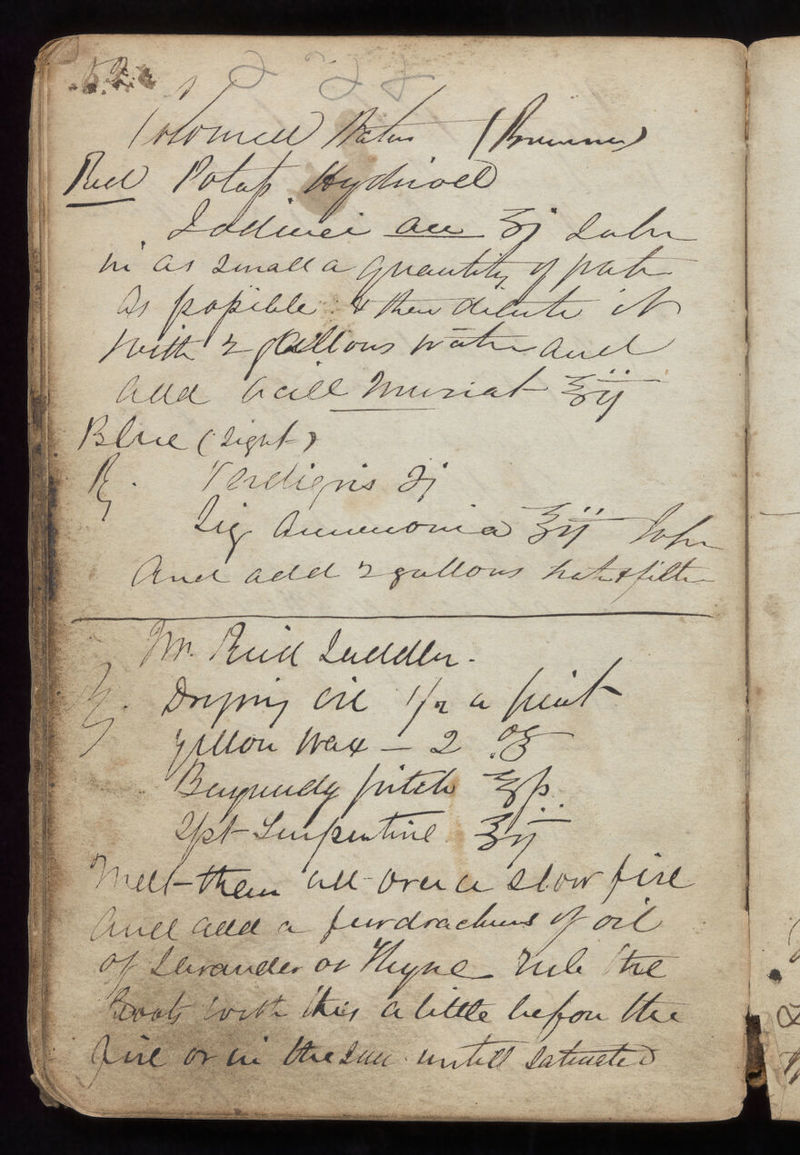 52
Coloured Water (Brunner)
Red Potass Hydriod
Iodinei aa ʒj Solv
in as small a quantity of wat
as possible & then dilute it
with 2 gallons water and
add acid Muriat ℥ij
Blue (Light)
℞. Verdigris ʒj
Liq Ammonia ℥ij Solv
And add 2 gallons wat & filter
Mr. Reid Saddler.
℞. Drying oil 1/2 a pint
Yellow Wax – 2 oz
Burgundy pitch ℥ß
Spt Turpentine ℥ij
Melt them all over a slow fire
and add a few drachms of oil
of Lavander or Thyne rub the
Boots with this a little before the
fire or in the sun untill satuated